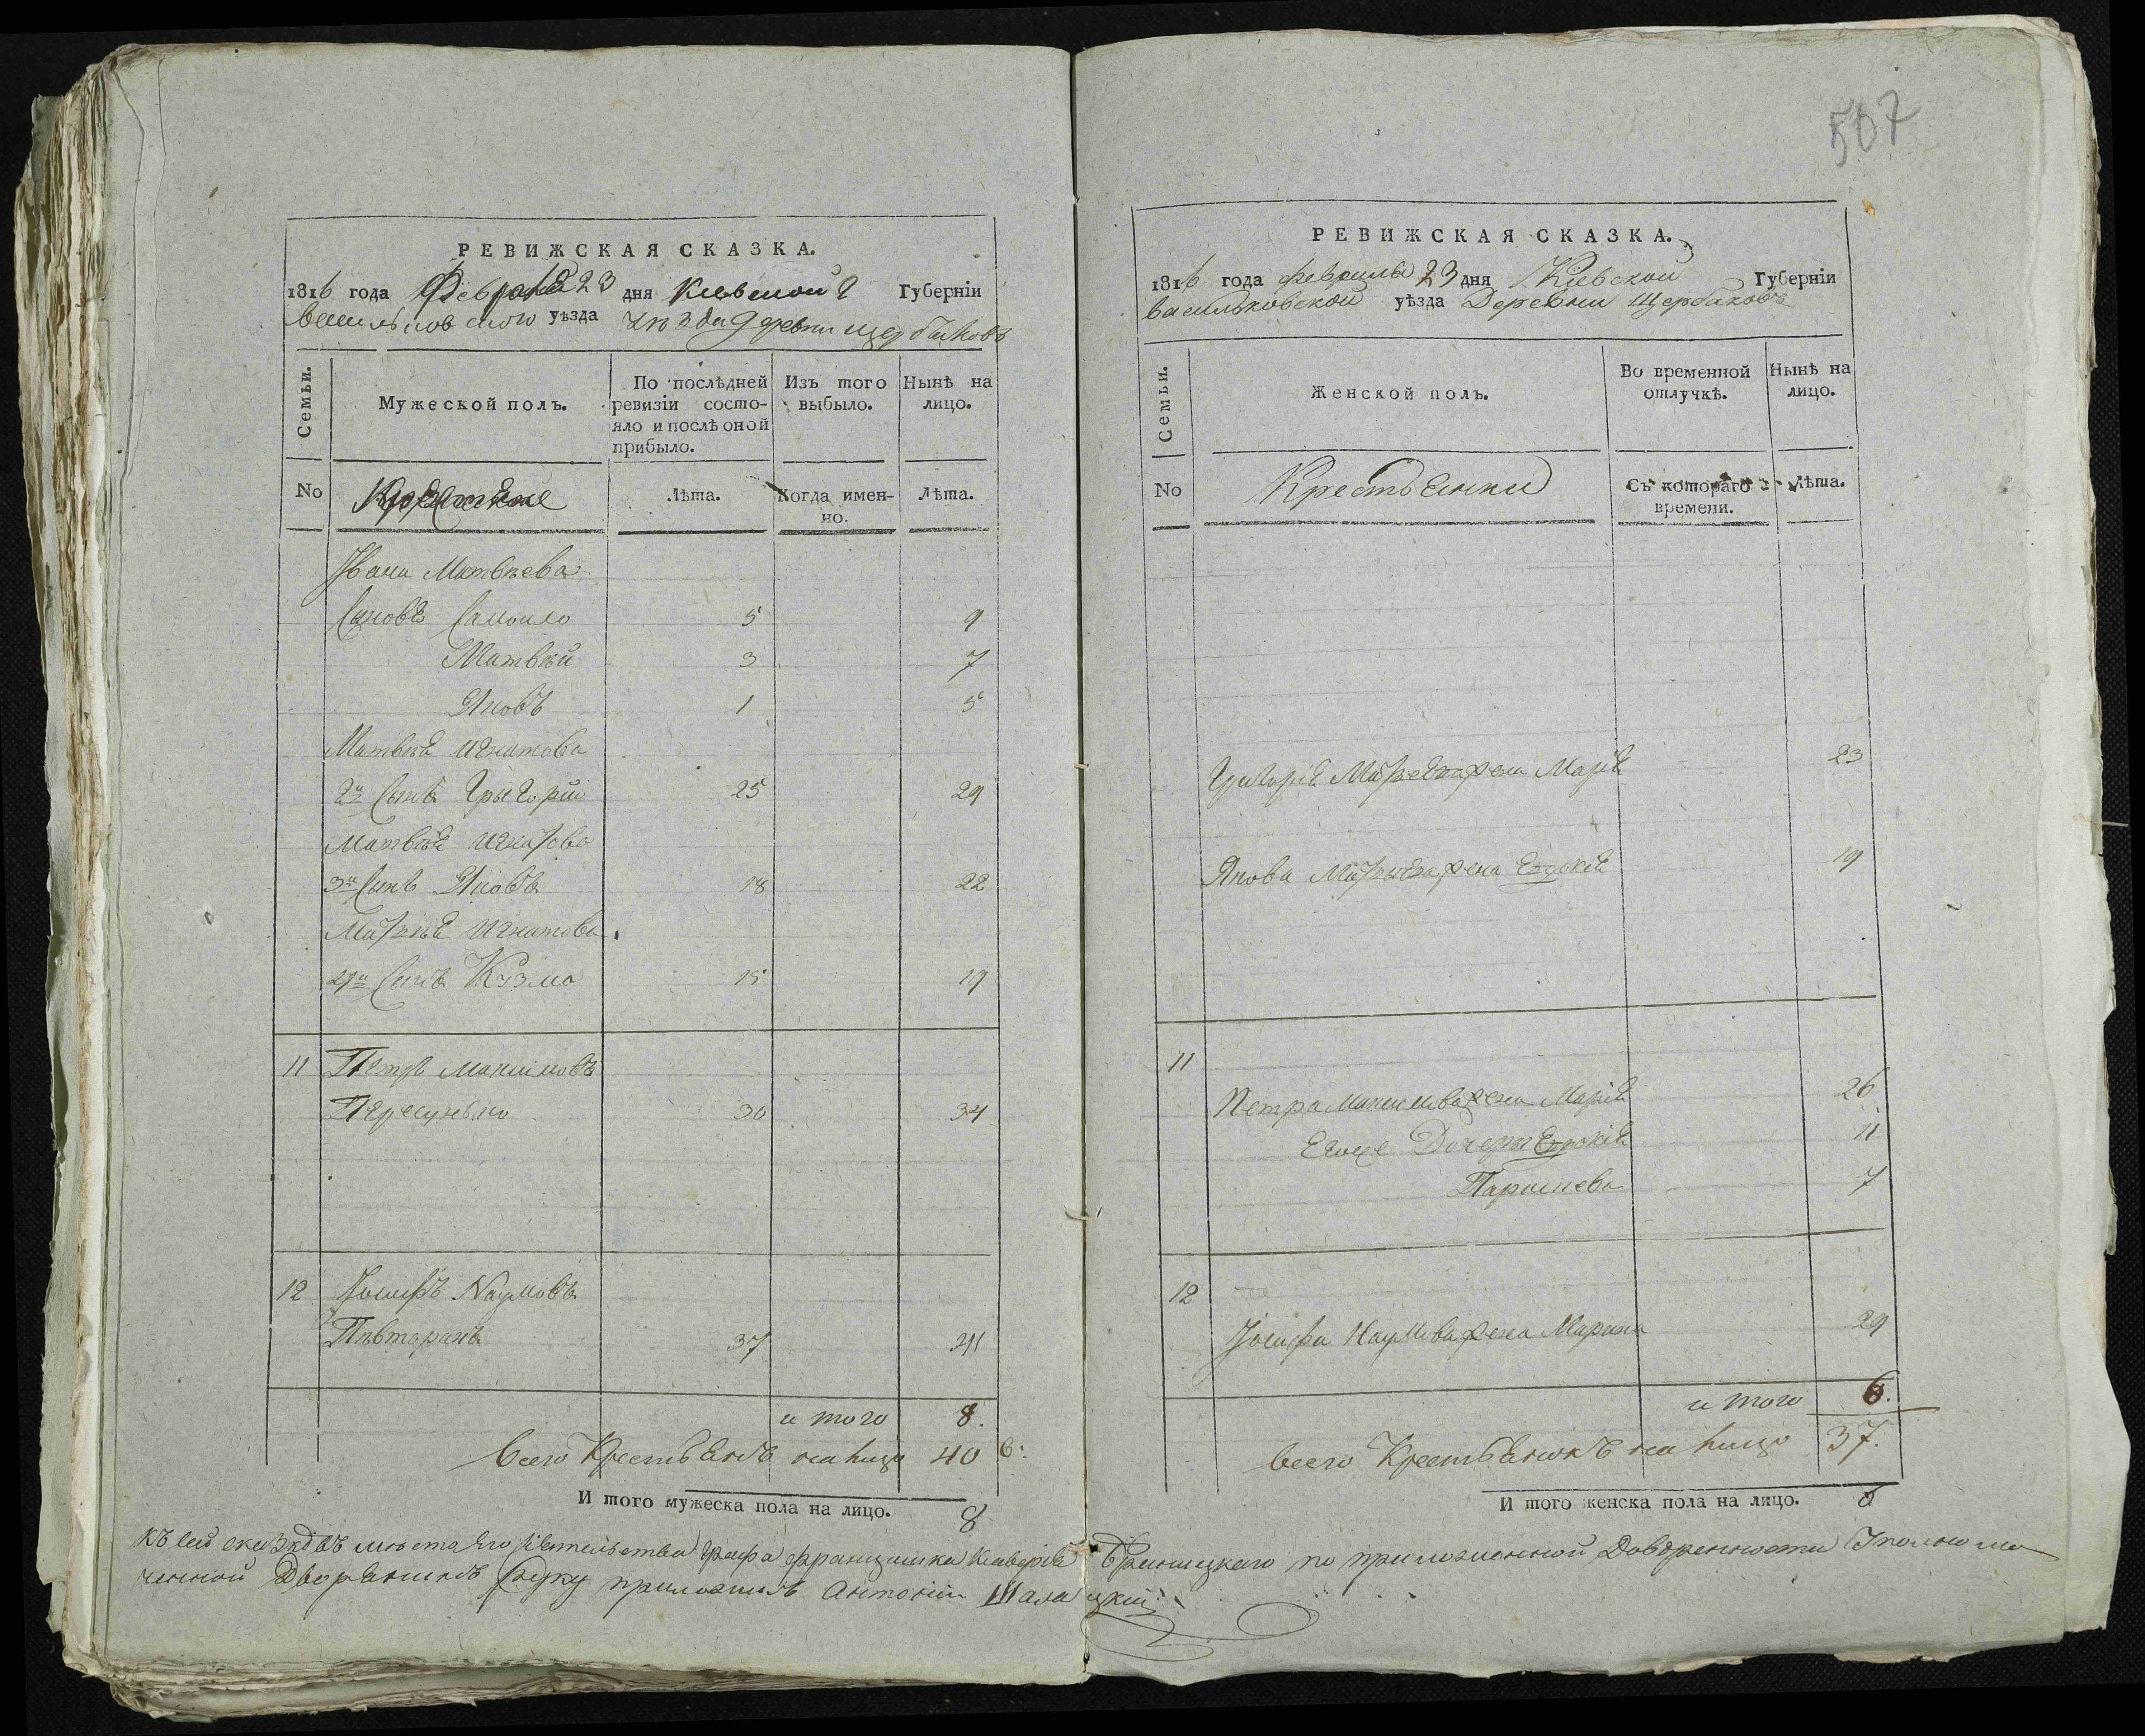 РЕВИЖСКАЯ СКАЗКА.
1816 года Февраля 23 дня Киевской Губерніи
Васильковского уѣзда деревни Щербаковъ
Семьи.
Мужеской полъ.
По послѣдней ревизіи состо-
яло и послѣ оной прибыло.
Изъ того выбыло.
Нынѣ на лицо.
No
Крестьяне
Лѣта.
Когда имен-
но.
Лѣта.
Ивана Матвѣева
Сыновя Самоило 5 9
Матвѣй 3 7
Яковъ 1 5
Матвѣя Игнатова
2й Сынъ Григорий 25 29
Матвѣя Игнатова
3й Сынъ Яковъ 18 22
Матвѣя Игнатова
4й Сынъ Кузма 15 19
11 Петръ Максимовъ
Пересунько 30 34
12 Іосифъ Наумовъ
Пѣвторакъ 37 41
итого 8.
всего Крестьянъ на лицо 40
И того мужеска пола на лицо. 8
507
РЕВИЖСКАЯ СКАЗКА.
1816 года февраля 23 дня Кіевской Губерніи
Васильковской уѣзда Деревни Щербаковъ
Семьи.
Женской полъ.
Во временной отлучкѣ.
Нынѣ на лицо.
No
Крестьянки
Съ котораго времени.
Лѣта.
Григорія Матвеева жена Марія 23
Якова Матвеева жена Евдокія 19
11
Петра Максимова жена Марія 26
Егоже Дочеры Евдокія 11
Параскева 7
12
Іосифа Наумова жена Марина 29
итого 6.
всего Крестьянокъ на лицо 37.
И того женска пола на лицо. 6
Къ сей сказкѣ въ мѣсто Его Сіятельства Графа Францишка Ксаверія Браницкаго по приложенной Доверенности Уполномо
ченной Дворянинъ руку приложилъ Антоній